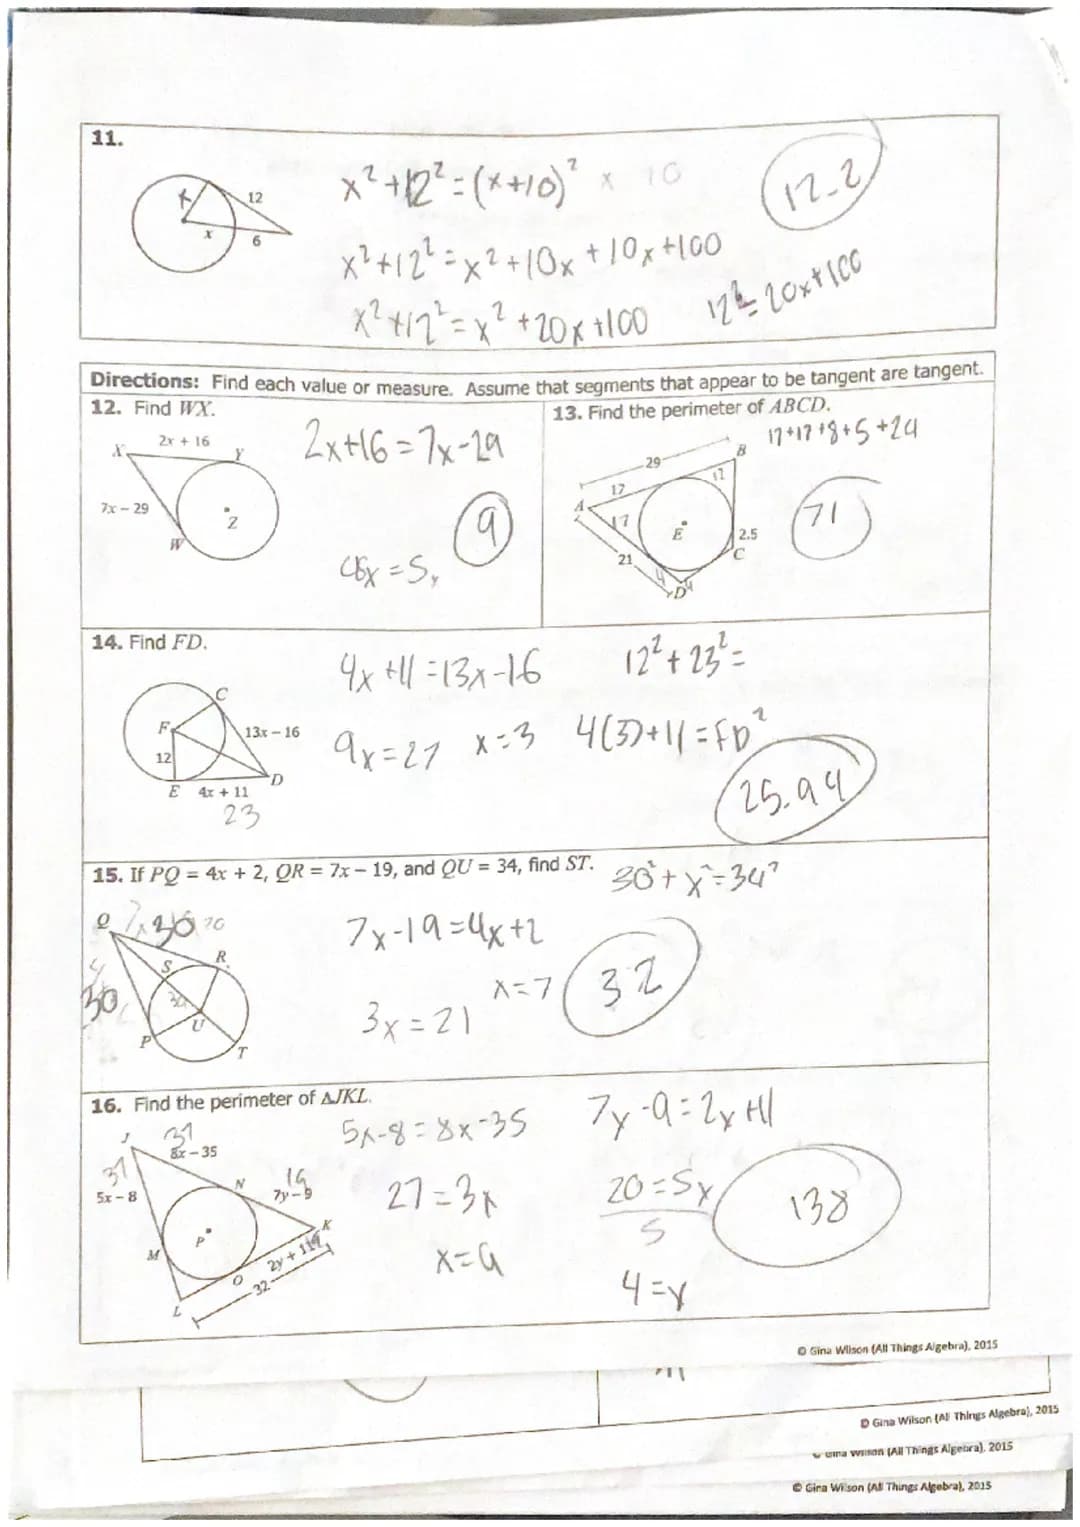 11.
x
12
x
6
x² + 12² = (x+10)² x 10
x² + 12² = x² + 10x + 10x + 100
x² + 12² = x² + 20x + 100
12² = 20x + 100
12.2
Directions: Find each value or measure. Assume that segments that appear to be tangent are tangent.
12. Find WX.
2x + 16
X
Y
7x – 29
Z
W
2x+16 = 7x-29
= 5x
9
13. Find the perimeter of ABCD.
17+17+8+5+24
29
B
17
12
A
17
E
2.5
C
21
4
D
4
71
14. Find FD.
C
F
13x – 16
12
D
E 4x + 11
23
4x + 11 = 13x - 16
9x = 27 x = 3
12² + 23² =
4(3)+11 = FD²
25.94
15. If PQ = 4x + 2, QR = 7x – 19, and QU = 34, find ST.
Q
30
S
R
30
U
P
T
7x-19 = 4x+2
3x = 21
x = 7
30² + x² = 34²
32
16. Find the perimeter of △JKL.
J
37
8x – 35
37
5x – 8
N
19
7y – 9
K
M
P
2y + 11
O
32
L
5x-8 = 8x-35
27 = 3x
x = 9
7y-9 = 2y+11
20 = 5y
5
4 = y
138
© Gina Wilson (All Things Algebra), 2015
© Gina Wilson (All Things Algebra), 2015
© Gina Wilson (All Things Algebra), 2015
© Gina Wilson (All Things Algebra), 2015